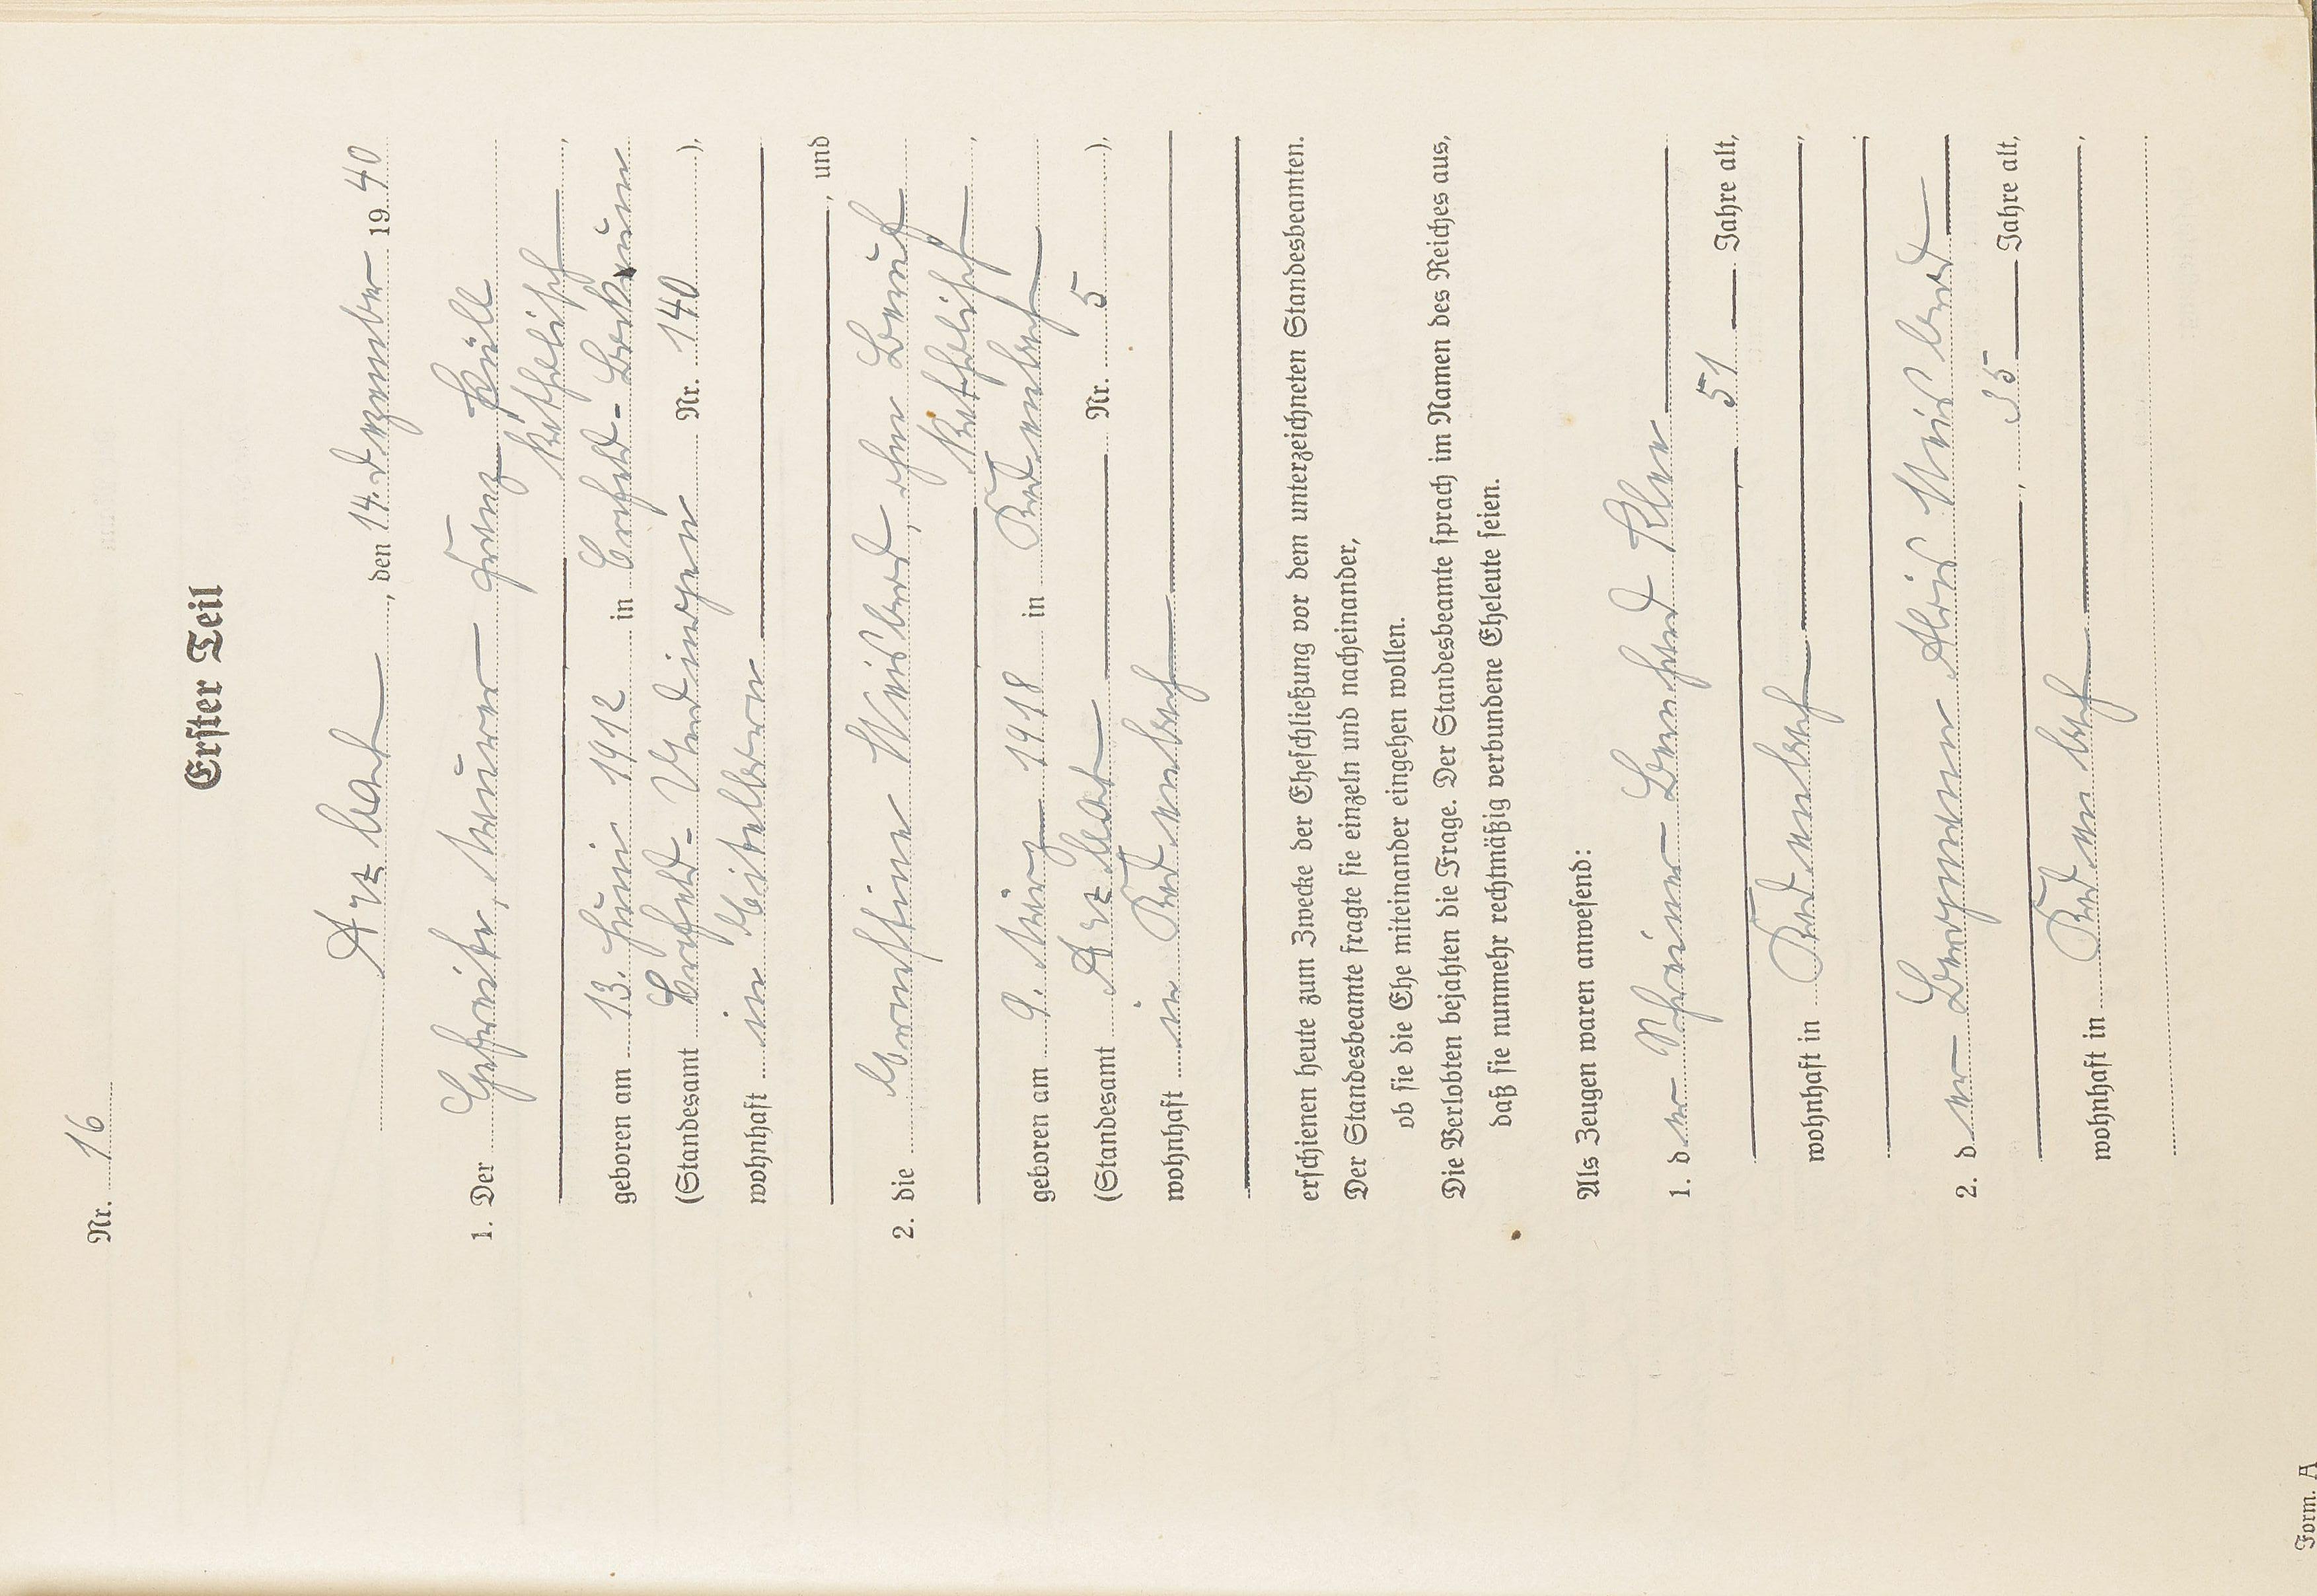 Nr. 16
Erster Teil
Arzbach, den 14. Dezember 1940
1. Der Gefreite, Maurer Franz Küll
katholisch,
geboren am 13. Juni 1912 in Crefeld-Bockum
(Standesamt Crefeld-Uerdingen Nr. 140),
wohnhaft in Eitelborn
, und
2. die Ernstine Weisbrod, ohne Beruf
katholisch,
geboren am 9. März 1918 in Kadenbach
(Standesamt Arzbach Nr. 5),
wohnhaft in Kadenbach
erschienen heute zum Zwecke der Eheschließung vor dem unterzeichneten Standesbeamten.
Der Standesbeamte fragte sie einzeln und nacheinander,
ob sie die Ehe miteinander eingehen wollen.
Die Verlobten bejahten die Frage. Der Standesbeamte sprach im Namen des Reiches aus,
daß sie nunmehr rechtmäßig verbundene Eheleute seien.
Als Zeugen waren anwesend:
1. der Schreiner Bernhard Klee
, 51 Jahre alt,
wohnhaft in Kadenbach,
2. der Bergmann Alois Weisbrod
, 35 Jahre alt,
wohnhaft in Kadenbach,
Form. A